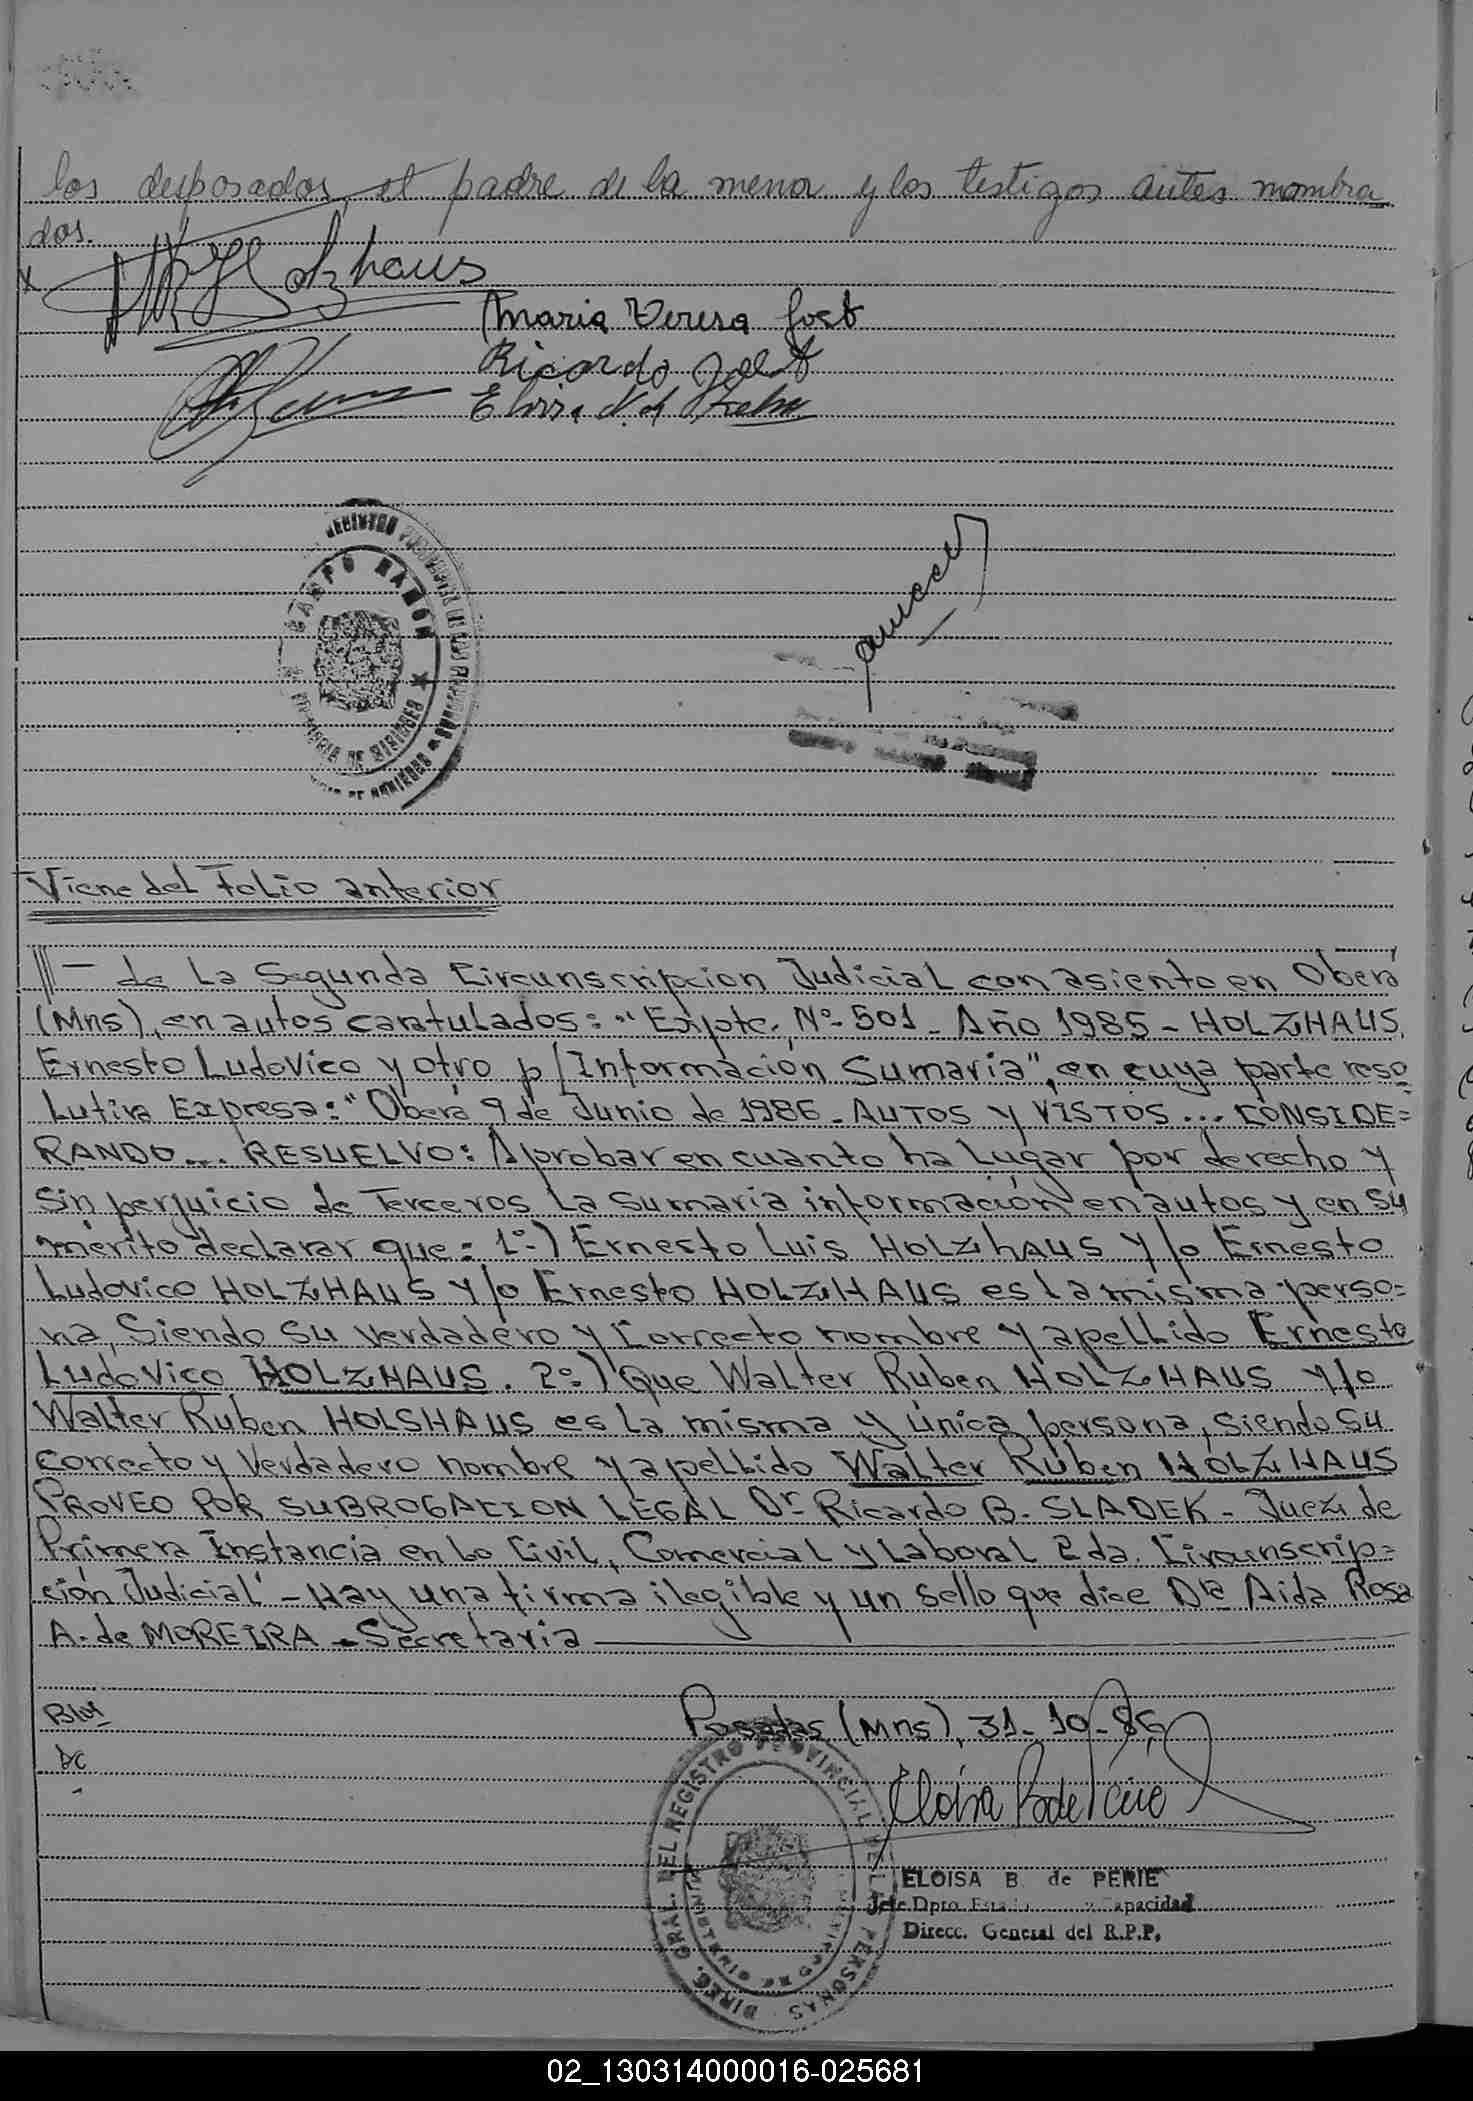 los desposados, el padre de la menor y los testigos antes nombra
dos.
x
Holzhaus
Maria Teresa Jost
Ricardo Jost
Elvira
REGISTRO PROVINCIAL DE LAS PERSONAS
CAMPO RAMON
PROVINCIA DE MISIONES
Viene del Folio anterior
///- de La Segunda Circunscripcion Judicial con asiento en Oberá
(Mns), en autos caratulados: "Expte. Nº 501 - Año 1985 - HOLZHAUS
Ernesto Ludovico y otro p/Información Sumaria", en cuya parte reso
Lutiva Expresa: "Oberá 9 de Junio de 1986 - AUTOS y VISTOS ... CONSIDE=
RANDO ... RESUELVO: Aprobar en cuanto ha Lugar por derecho y
sin perjuicio de Terceros La sumaria información en autos y en su
mérito declarar que: 1º-) Ernesto Luis HOLZHAUS y/o Ernesto
Ludovico HOLZHAUS y/o Ernesto HOLZHAUS es La misma perso=
na, Siendo su verdadero y correcto nombre y apellido Ernesto
Ludovico HOLZHAUS. 2º-) Que Walter Ruben HOLZHAUS y/o
Walter Ruben HOLSHAUS es La misma y única persona, siendo su
correcto y verdadero nombre y apellido Walter Ruben HOLZHAUS
PROVEO POR SUBROGACION LEGAL Dr Ricardo B. SLADEK - Juez de
Primera Instancia en Lo Civil, Comercial y Laboral 2da. Circunscrip=
ción Judicial" - Hay una firma ilegible y un sello que dice Dra Aida Rosa
A. de MOREIRA - Secretaria
Posadas (Mns), 31-10-86
DIREC. GRAL. DEL REGISTRO PROVINCIAL DE L PERSONAS
MINISTERIO DE GOBIERNO
ELOISA B. de PERIE
Jefe Dpto. Estado y Capacidad
Direcc. General del R.P.P.
02_130314000016-025681